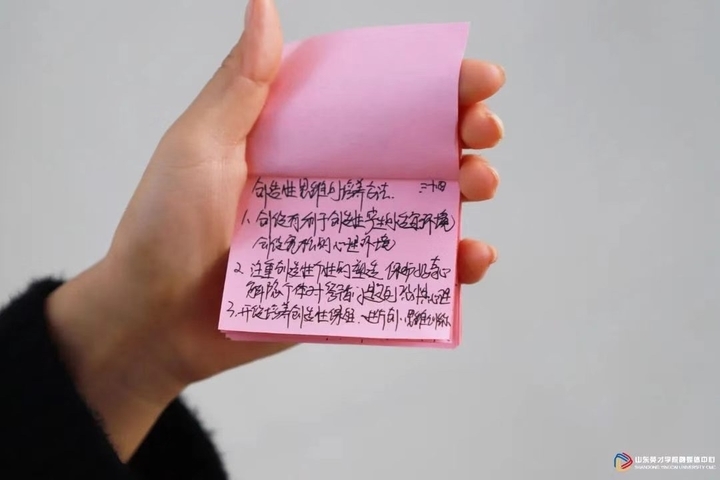 创造性思维的培养方法. 三十四
1、创设有利于创造性产生的适宜环境
创设宽松的心理环境
2.注重创造性个性的塑造 保护好奇心
解除个体对答错问题的恐惧心理
3.开设培养创造性课程、进行创.思维训练
山东英才学院融媒体中心
SHANDONG YINGCAI UNIVERSITY CMC